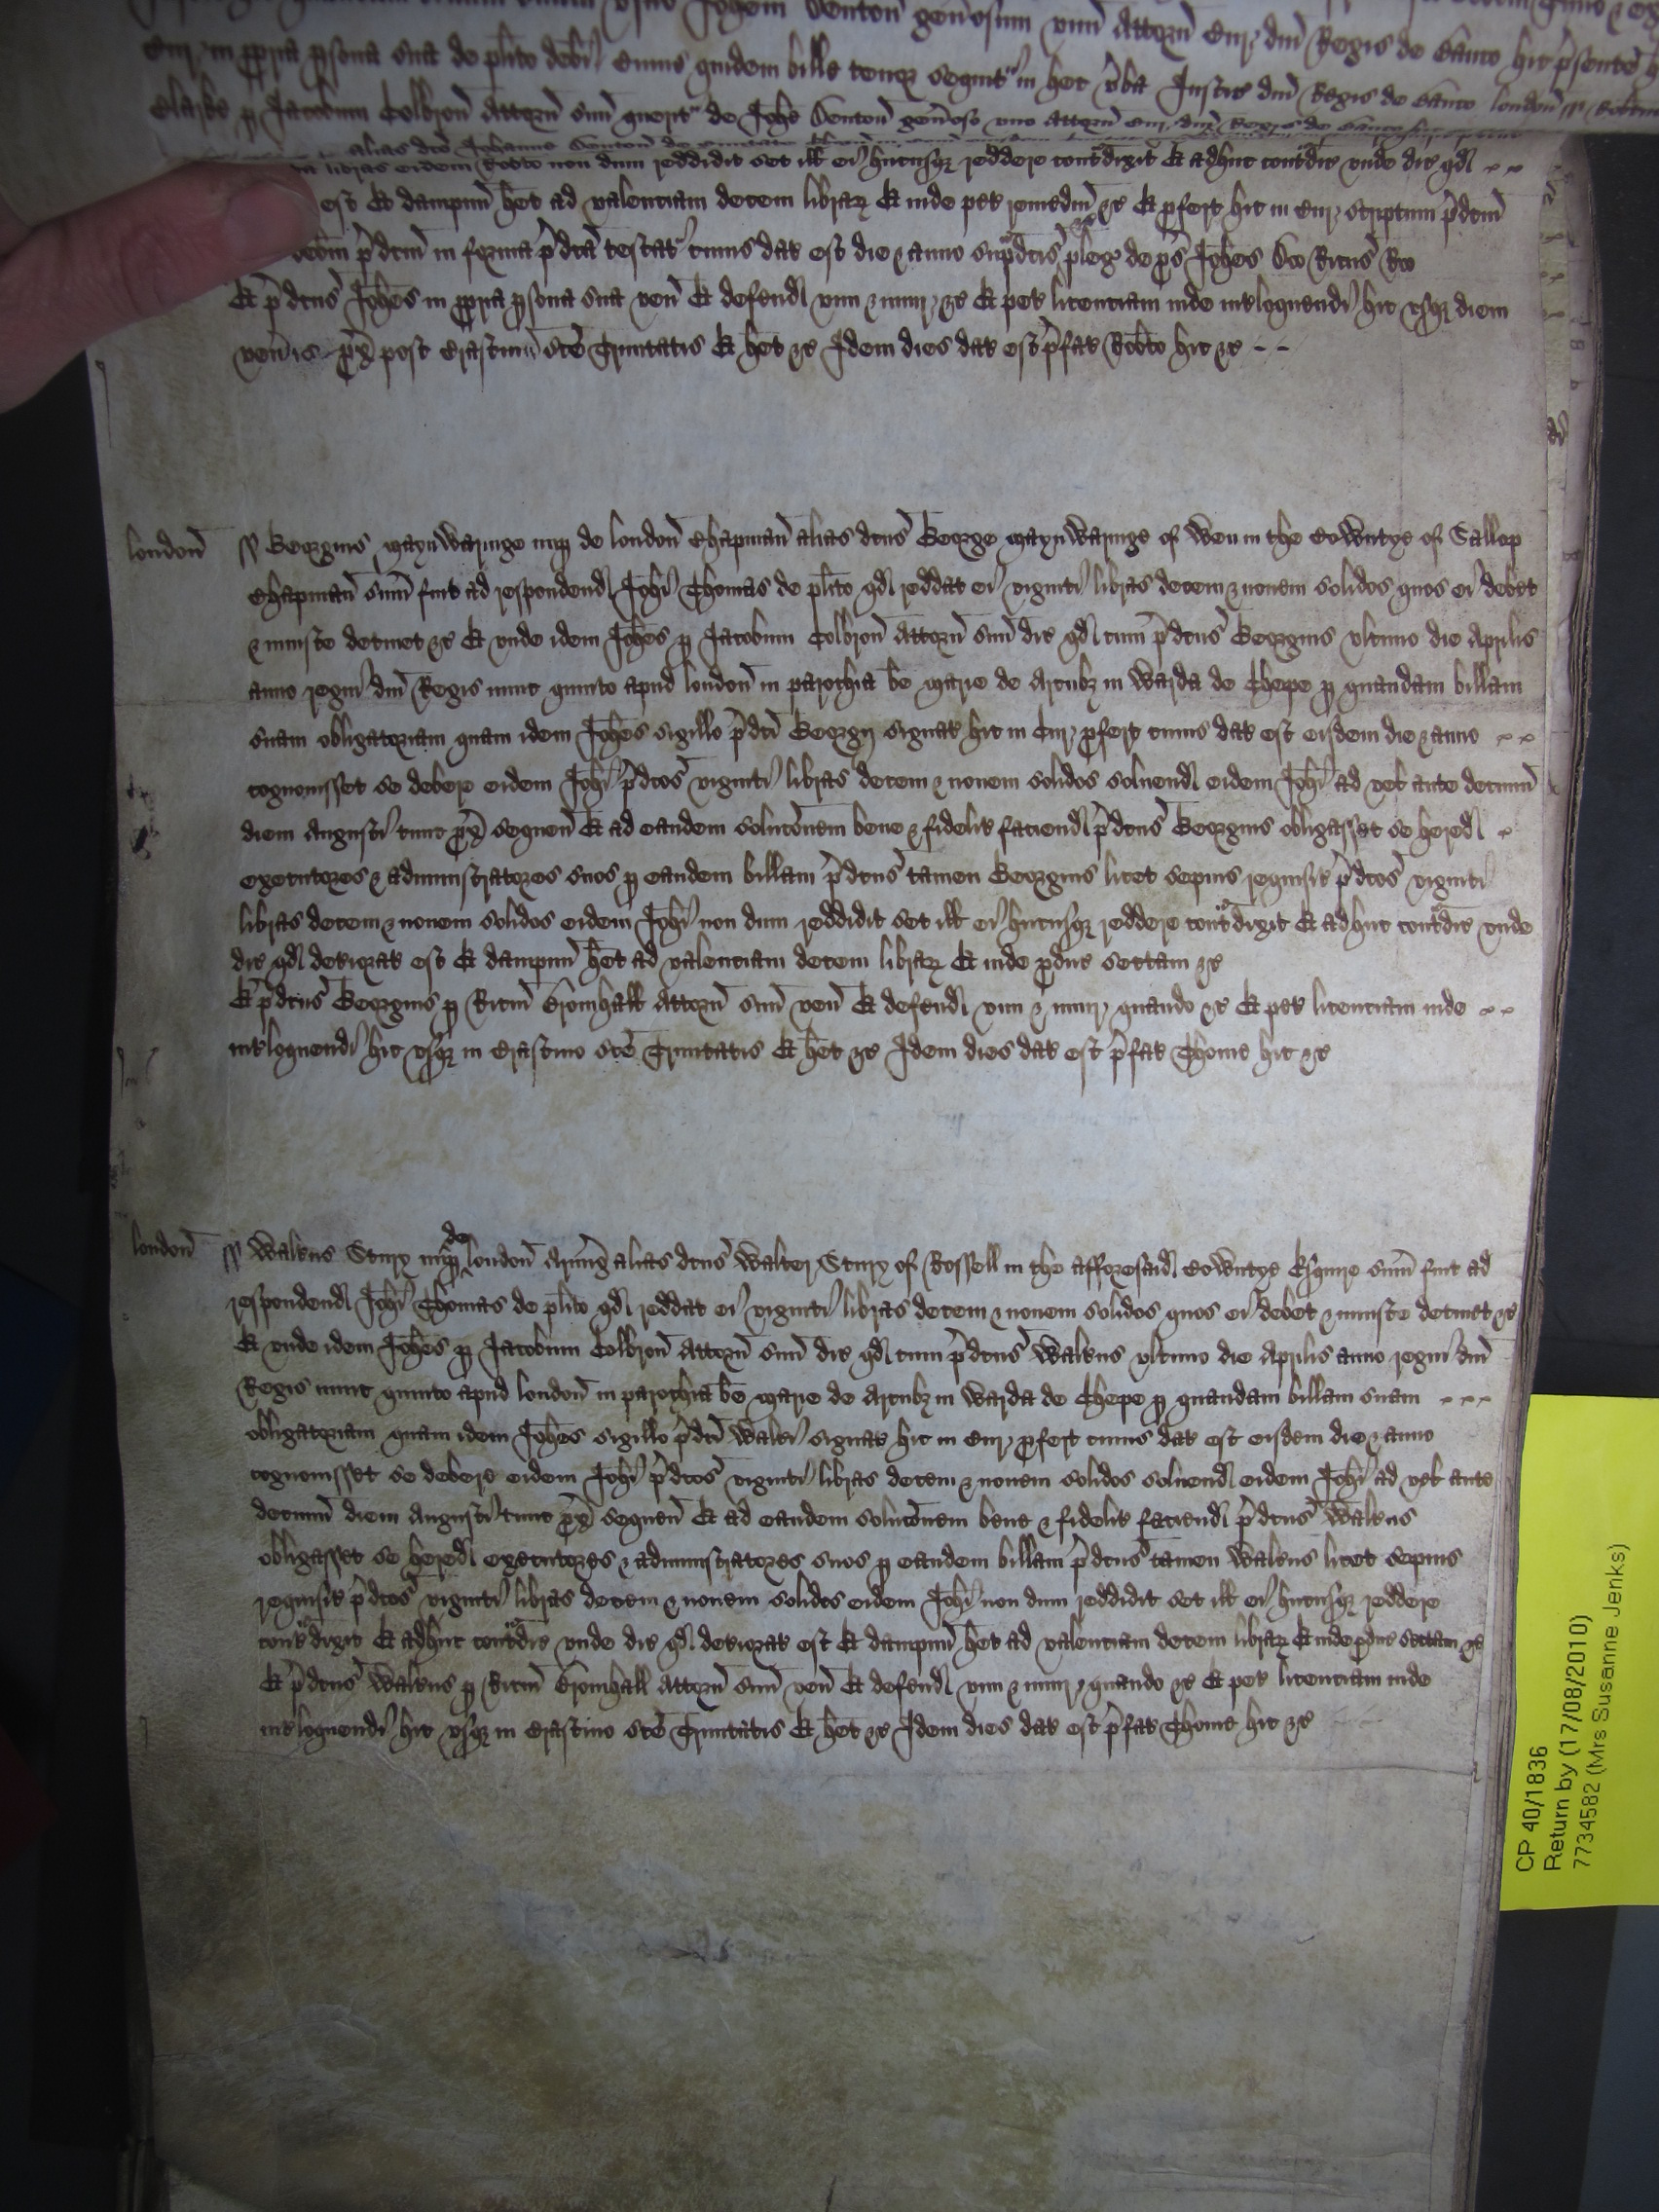 Johem Denton gen̄osum unū Attorn̄ Cur̄ dn̄i Regis de Banco hic p̄sente
Cur̄ in pp̄ria p̱sona sua de plito debi cuius quidem bille tenor sequit̄ in hec v̄ba Justic dn̄i Regis de Banco london̄ ss Robtus
Clarke p̱ Jacobum Colbron̄ Attorn̄ suū querit̄ de Johe Denton gen̄oso uno Attorn̄ Cur̄ dn̄i Regis de Banco
alias dc̄o Johanne Denton de
libras eidem Robto non dum reddidit set ill ei hucusq̄ reddere cont̄dixit Et adhuc cont̄dic unde dic qd
est Et dampnū het ad valenciam decem librar̄ Et inde pet remediū &c Et p̱fert hic in Cur̄ scriptum p̄dcm̄
debm̄ p̄dcm̄ in forma p̄dc̄a testat̄ cuius dat est die & anno sup̄dcis pleg de p̱s Johes Doo Ric̄us Roo
Et p̄dcus Johes in pp̄ria p̱sona sua ven̄ Et defend vim & iniur̄ &c Et pet licenciam inde int̄loquendi hic usq̄ diem
ven̄is p̱x post Crastinū sc̄e Trinitatis Et het &c Idem dies dat est p̄fat Robto hic &c
london̄ ss Georgius Maynwaringe nup̱ de london̄ Chapman̄ alias dcus George Maynwaringe of Wem in the Cowntye of Sallop
Chapman̄ sum̄ fuit ad respondend Johi Thomas de plito qd reddat ei viginti libras decem & novem solidos quos ei debet
& iniuste detinet &c Et unde idem Johes p̱ Jacobum Colbron̄ Attorn̄ suū dic qd cum p̄dcus Georgius ultimo die Aprilis
anno regni dn̄i Regis nunc quinto apud london̄ in parochia be Marie de Arcubz in Warda de Chepe p̱ quandam billam
suam obligatoriam quam idem Johes sigillo p̄dci Georgij signat hic in Cur̄ p̱fert cuius dat est eisdem die & anno
cognovisset se debere eidem Johi p̄dcos viginti libras decem & novem solidos solvend eidem Johi ad vel ante decimū
diem Augusti tunc p̱x sequen̄ Et ad eandem soluc̄onem bene & fidelit̄ faciend p̄dcus Georgius obligasset se hered
executores & administratores suos p̱ eandem billam p̄dcus tamen Georgius licet sepius requisit p̄dcos viginti
libras decem & novem solidos eidem Johi non dum reddidit set ill ei hucusq̄ reddere cont̄dixit Et adhuc cont̄dic unde
dic qd deteriorat est Et dampnū het ad valenciam decem librar̄ Et inde p̱duc sectam &c
Et p̄dcus Georgius p̱ Ric̄m Bromhall Attorn̄ suū ven̄ Et defend vim & iniur̄ quando &c Et pet licenciam inde
int̄loquendi hic usq̄ in Crastino sc̄e Trinitatis Et het &c Idem dies dat est p̄fat Thome hic &c
london̄ ss Walt̄us Stury nup̱ de london̄ Armiḡ alias dcus Walter Stury of Rossell in the afforesaid Cowntye Esquire sum̄ fuit ad
respondend Johi Thomas de plito qd reddat ei viginti libras decem & novem solidos quos ei debet & iniuste detinet &c
Et unde idem Johes p̱ Jacobum Colbron̄ Attorn̄ suū dic qd cum p̄dcus Walt̄us ultimo die Aprilis anno regni dn̄i
Regis nunc quinto apud london̄ in parochia be Marie de Arcubz in Warda de Chepe p̱ quandam billam suam
obligatoriam quam idem Johes sigillo p̄dci Walt̄i signat hic in Cur̄ p̱fert cuius dat est eisdem die & anno
cognovisset se debere eidem Johi p̄dcos viginti libras decem & novem solidos solvend eidem Johi ad vel ante
decimū diem Augusti tunc p̱x sequen̄ Et ad eandem soluc̄onem bene & fidelit̄ faciend p̄dcus Walt̄us
obligasset se hered executores & administratores suos p̱ eandem billam p̄dcus tamen Walt̄us licet sepius
requisit p̄dcos viginti libras decem & novem solidos eidem Johi non dum reddidit set ill ei hucusq̄ reddere
cont̄dixit Et adhuc cont̄dic unde dic qd deteriorat est Et dampnū het ad valenciam decem librar̄ Et inde p̱duc sectam &c
Et p̄dcus Walt̄us p̱ Ric̄m Bromhall Attorn̄ suū ven̄ Et defend vim & iniur̄ quando &c Et pet licenciam inde
int̄loquendi hic usq̄ in Crastino sc̄e Trinitatis Et het &c Idem dies dat est p̄fat Thome hic &c
CP 40/1836
Return by (17/08/2010)
7734582 (Mrs Susanne Jenks)